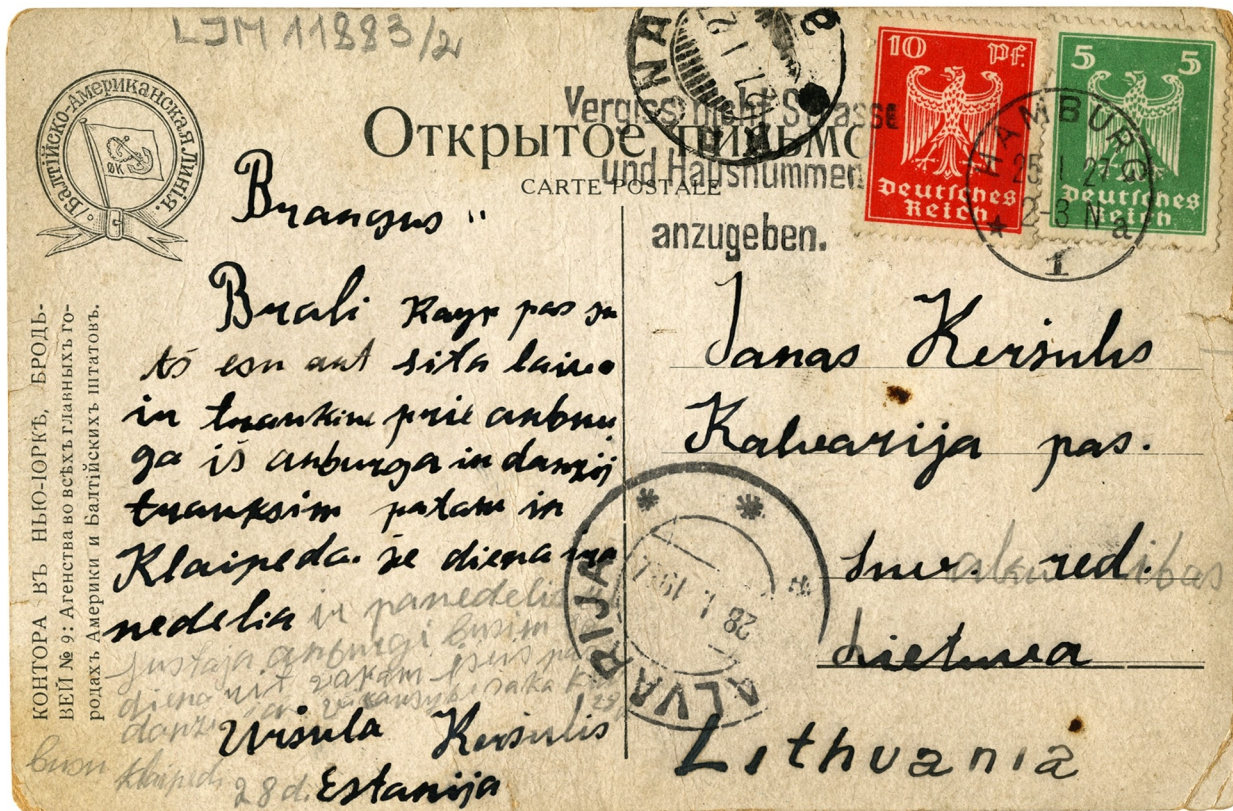 LJM 11883/2
Балтійско-Американская Линія.
Открытое письмо
CARTE POSTALE
Vergiss nicht Strasse
und Hausnummer
anzugeben.
10 Pf.
Deutsches
Reich
5 5
Deutsches
Reich
HAMBURG
25.1.27
2-3 N
a
1
КОНТОРА ВЪ НЬЮ-ІОРКѢ, БРОДЬ-
ВЕЙ № 9: Агенства во всѣхъ главныхъ го-
родахъ Америки и Балтійскихъ штатовъ.
Brangus
Brali Kayp pas ju
Aš esu ant sita laivo
ir trauksim prie anburu
ga iš anburga in danzij
trauksim patam in
Klaipeda. še diena yra
nedelia ir panedelis
justaja anburgi busim
diena
Uršula Keršulis
busu klaiped. 28 d. Estanija
Janas Keršulis
Kalvarija pas.
red.
Lietuva
Lithuania
ALVARIJA
28.1.1927